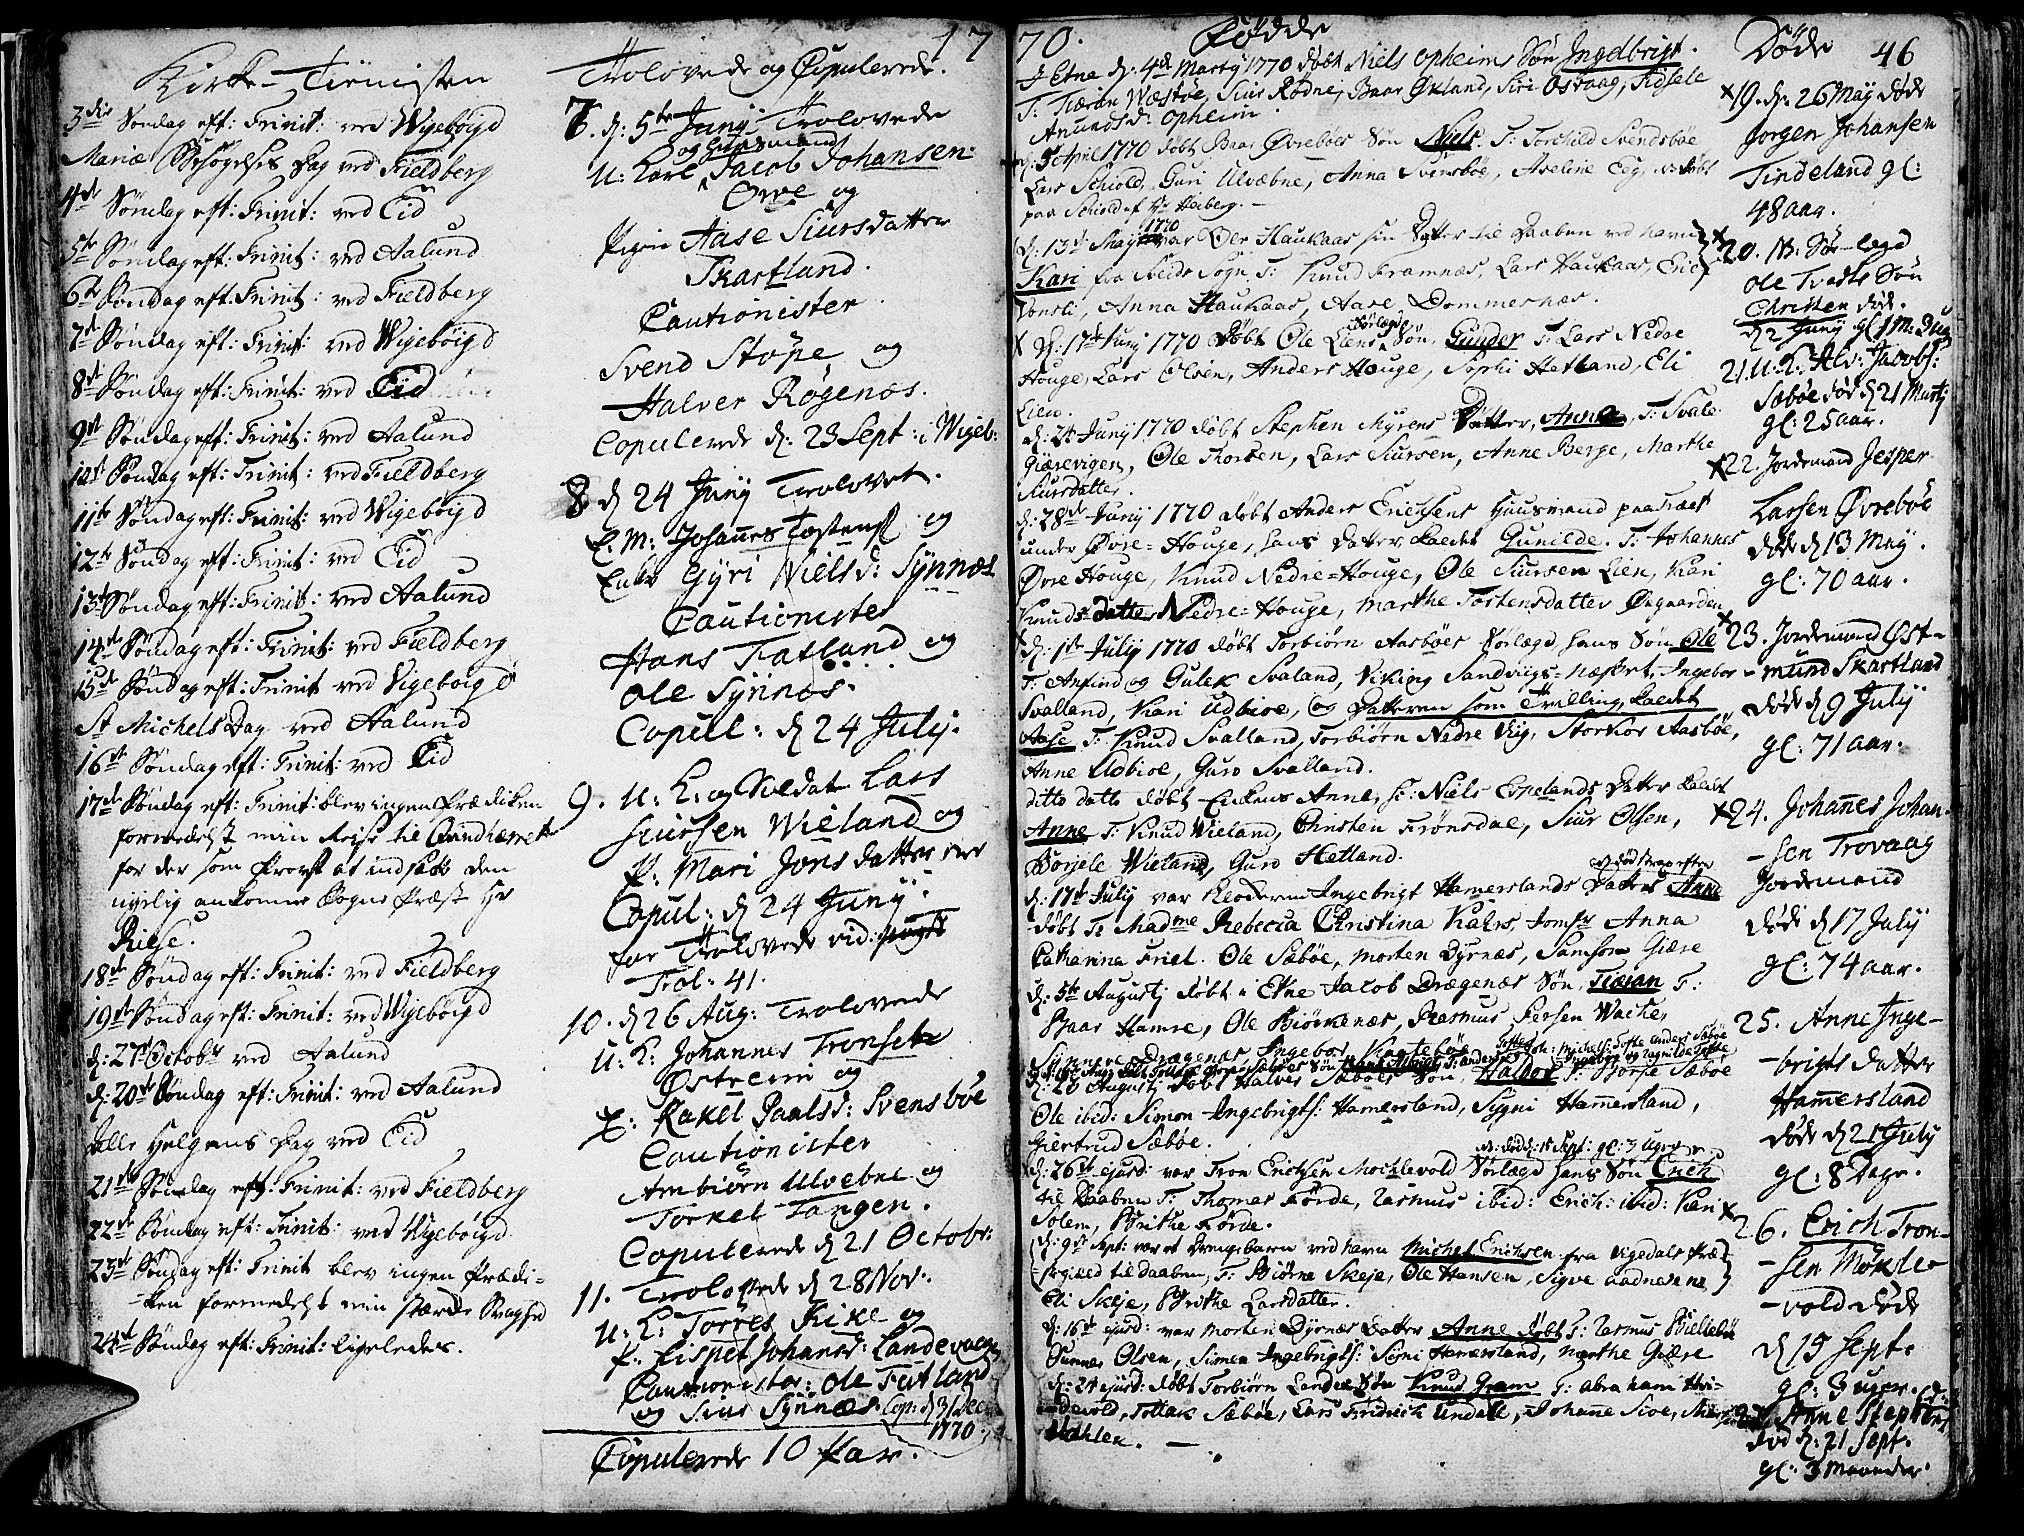 17
Kirke-Tienisten
3die Søndag eft: Trinit: ved Wigebøigd
Mariæ Besøgelses Dag ved Fieldberg
4de Søndag eft: Trinit: ved Eid
5te Søndag eft: Trinit: ved Aalund
6te Søndag eft: Trinit: ved Fieldberg
7de Søndag eft: Trinit: ved Wigebøigd
8de Søndag eft: Trinit: ved Eid
9de Søndag eft: Trinit: ved Aalund
10de Søndag eft: Trinit: ved Fieldberg
11te Søndag eft: Trinit: ved Wigebøigd
12te Søndag eft: Trinit: ved Eid
13te Søndag eft: Trinit: ved Aalund
14de Søndag eft: Trinit: ved Fieldberg
15de Søndag eft: Trinit ved Vigebøigd
St Michels Dag ved Aalund
16de Søndag eft: Trinit: ved Eid
17de Søndag eft: Trinit: blev ingen Prædiken
formedelst min Reise til
for der som Provst at indsætte den
nyelig ankomne Sogne Præst Hr
Riese.
18de Søndag eft: Trinit: ved Fieldberg
19de Søndag eft: Trinit: ved Wigebøigd
d: 27de Octobr ved Aalund
d: 20de Søndag eft: Trinit: ved Aalund
Alle Helgens Dag ved Eid
21de Søndag eft: Trinit: ved Fieldberg
22de Søndag eft: Trinit: ved Wigebøigd
23de Søndag eft: Trinit blev ingen Prædi-
-ken formedelst min stærke Svaghed
24de Søndag eft: Trinit: ligeledes.
Trolovede og Copulerede.
7. d: 5te Junij Trolovede
og Huusmand
U: Karl Jacob Johansen
Øvre og
Pigen Aase Siursdatter
Skartland.
Cautionister
Svend Støpe og
Halver Røgenæs.
Copulerede d: 23 Sept: i Wigeb:
8 d 24 Junij Trolovet.
E. M: Johannes Tostens: og
Enke Gyri Nielsd: Synnæs
Cautionister
Hans Fatland og
Ole Synnæs.
Copul: d 24 July.
9. U: K: og Soldat Lars
Siursen Wieland og
P: Mari Jonsdatter
Copul: d 24 Junij:
for Trolovede vid:
Trol: 41.
10. d 26 Aug: Trolovede
U: K: Johannes Tronsen
Østreim og
P: Rakel Paalsd: Svensbøe
Cautionister
Ambiørn Ulvebne og
Torkel Tangen.
Copulerede d 21 Octobr:
11. Trolovede d 28 Nov:
U: K: Torres Rike og
P: Lispet Johansd: Landevaag
Cautionister: Ole Fatland
og Siur Synnæs. Cop: d 31 Dec
1770.
Copulerede 10 Par.
70.
Fødde
I Etne d: 4de Marty 1770 døbt Niels Opheims Søn Ingebrigt.
T: Tieran Wæstøe, Siur Rødne, Baar Økland, Siri Osvaag, Sidsele
Amundsd: Opheim
d: 5 April 1770 døbt Baar Øvrebøes Søn Niels. T: Torchild Svendsbøe
Lars Schiold, Guri Ulvæbne, Anna Svensbøe, Aseline Eeg,
paa Schiold af Hr Heiberg.
d: 13de May 1770 var Ole Haukaas sin Datter til Daaben ved Navn
Kari fra Neds Sogn T: Knud Framnæs, Lars Haukaas, Eric
Vonsli, Anna Haukaas, Aase Dommersnæs.
d: 17de Juny 1770 døbt Ole Liens Sørlægd Søn, Gunder T: Lars Nedre
Houge, Lars Olsen, Anders Houge, Sophi Hetland, Eli
Lien.
d: 24 Juny 1770 døbt Stephen Myrens Datter, Anna, T: Svale
Giærevigen, Ole Thorsen, Lars Siursen, Anne Berge, Marthe
Siursdatter.
d: 28de Juny 1770 døbt Anders Erichsens Huusmand paa
under Øvre-Houge, hans Datter kaldet Gunilde. T: Johannes
Øvre Houge, Knud Nedre-Houge, Ole Siursen Lien, Kari
Knuds datter Nedre-Houge, Marthe Tostensdatter Øsgaarden
d: 1ste July 1770 døbt Torbiørn Aasbøes Sørlægd hans Søn Ole
T: Anfind og Gulek Svaland, Viking Sandvigs-Næsset, Ingebor
Svalland, Kari Udbioe, og Datteren som Tvilling kaldet
Aase T: Knud Svalland, Torbiørn Nedre Viig, Storkor Aasbøe,
Anne Udbioe, Guro Svalland.
ditto dato døbt Enkens Anne, sc: Niels Espelands Datter kaldet
Anne T: Knud Wieland, Christen Frønsdal, Siur Olsen,
Borgele Wieland, Guro Hetland.
d: 17de July var Ingebrigt Hamerslands Datter Anna
døbt T: Madme Rebecca Christina Kahrs, Jomfr Anna
Catharina Friel. Ole Sæbøe, Morten Dyrnæs, Samson Giære
d: 5te Augustj døbt i Etne Jacob Drægenæs Søn, Tieran T:
Baar Hamre, Ole Biørkenæs, Rasmus Persen Wache,
Synneve Drægenæs Ingebor
d: 26 Augustj døbt Halver Sæbøes Søn, Haldor T: Børse Sæbøe
Ole ibid: Simon Ingebrigts: Hamersland, Sygni Hammersland,
Giertrud Sæbøe.
N: død d: 15 Sept: gl: 3 Uger
d: 26de ejusd: var Tron Erichsen Møchlevold Sørlægd hans Søn Erich
til Daaben T: Thomas Førde, Rasmus ibid: Erich: ibid: Kari
Solem, Brithe Førde.
d: 9de Sept: var et Drengebarn ved Navn Michel Erichsen fra Vigedals Præ-
stegield til Daaben, T: Biørne Skeje, Ole Hansen, Sigve
Eli Skeje, Brithe Larsdatter.
d: 16de ejusd: var Morten Dyrnæs Datter Anne døbt T: Rasmus Biellebøe
Gunnar Olsen, Simen Ingebrigts: Siuni Hamersland, Marthe Giære
d: 24 ejusd: døbt Torbiørn Landes Søn Knud Gram T: Abraham Hvi-
devold, Tollak Sæbøe, Lars Fredrich Undall, Johanne Sioe,
Mahlen.
Døde 46
19. d: 26 May døde
Jorgen Johansen
Tindeland gl:
48 aar.
20. N: Sør-lægd
Ole Tvedts Søn
Christen død.
22 Juny gl 1 M: 3 ug
21. U: K: Hlv: Jacobs:
Sæbøe død d 21 Marty
gl: 25 aar.
22. Jordemand Jesper
Larsen Øvrebøe
døde d 13 May.
gl: 70 aar.
23. Jordemand Øst-
-mund Skartland
døde d 9 July
gl: 71 aar.
24. Johannes Johan-
-sen Trovaag
Jordemand
døde d 17 July
gl: 74 aar.
25. Anne Inge-
-brigts datter
Hammersland
døde d 21 July
gl: 8 Dage.
26. Erich Tron-
-sen Møkle-
-vold døde
d 15 Sept.
gl: 3 uger.
27. Anne Stephens
død d: 21 Sept.
gl: 3 Maaneder.